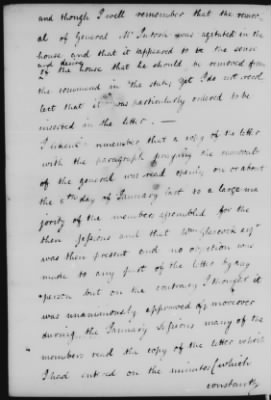 and though I well remember that the remov-
al of General McIntosh was agitated in the
house and that it appeared to be the sense
and desire
of the house that he should be removed from
the command in the state, yet I do not recol
lect that it was particularly ordered to be
inserted in the letter. —
I remember that a copy of the letter
with the paragraph the removal
of the general was read openly on or about
the day of January last to a large ma
jority of the members assembled for the
then Sessions and that Wm Glascock esqr
was then present and no objection was
made to any part of the letter by any
person but on the contrary I thought it
was unanimously approved of; moreover
during the January Sessions many of the
members read the copy of the letter which
I had entred on the minutes (which
constantly